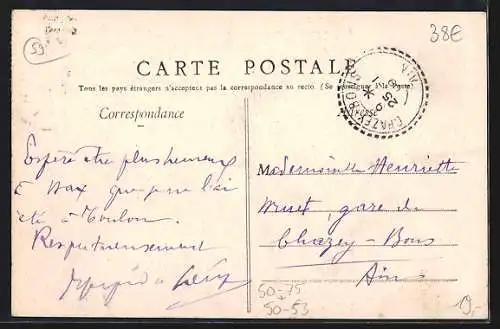 38€
53
CARTE POSTALE
Tous les pays étrangers n'acceptent pas la correspondance au recto. (Se renseigner à la Poste)
Correspondance
CHAZEY-BONS
AIN
Espère être plus heureux
à que je ne l'ai
été à Toulon.
Respectueusement
Mademoiselle Henriette
gare de
Chazey-Bons
Ain
50-75
50-53
19,-